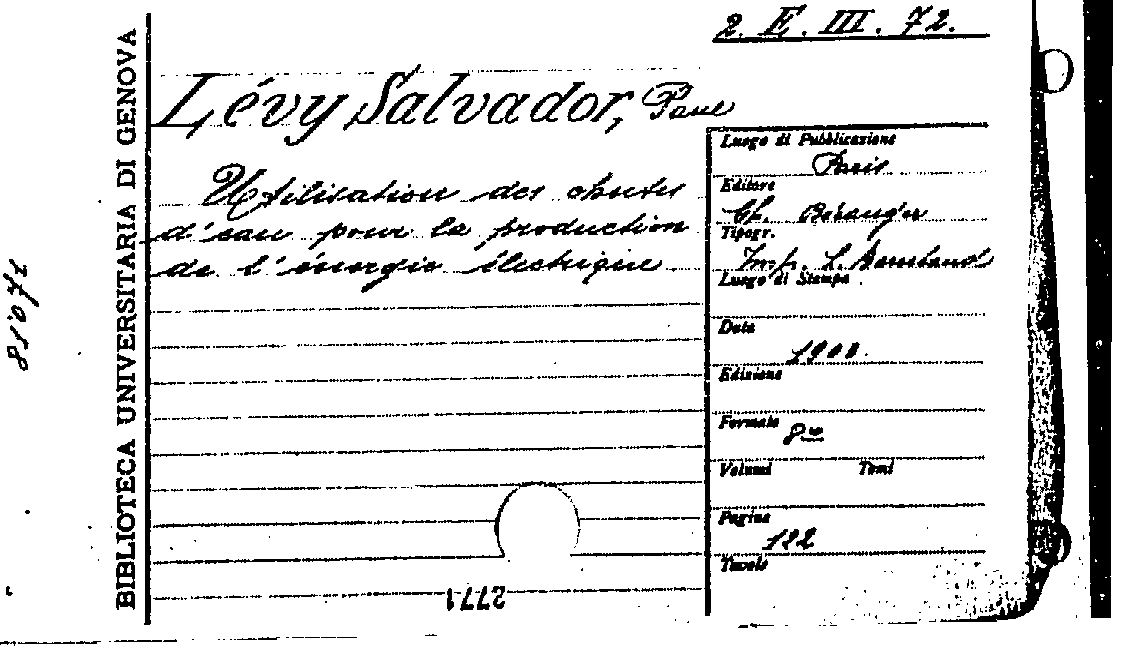 2. E. III. 72.
Lévy Salvador, Paul
Utilisation des chutes
d'eau pour la production
de l'énergie électrique
Luogo di Pubblicazione
Paris
Editore
Ch. Béranger
Tipogr.
Imp. L.
Luogo di Stampa
Data
Edizione
Formato 8vo
Volumi Tomi
Pagine
182
Tavole
BIBLIOTECA UNIVERSITARIA DI GENOVA
81071
2771